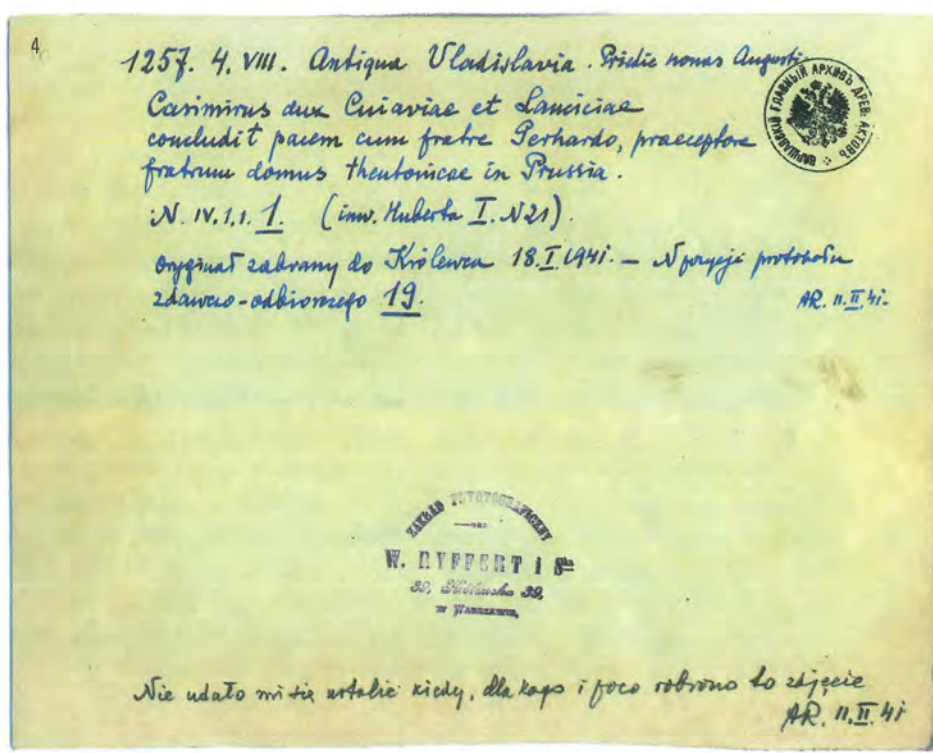 4
1257. 4. VIII. Antiqua Vladislavia. Pridie nonas Augusti.
Casimirus dux Cuiaviae et Lanciciae
concludit pacem cum fratre Gerhardo, praeceptore
fratrum domus theutonicae in Prussia.
N. IV.1.1. 1. (inw. Huberta I. N21).
oryginał zabrany do Królewca 18.I.1941. — N pozycji protokołu
zdawczo-odbiorczego 19.
AR. 11.II.41.
ВАРШАВСКІЙ ГЛАВНЫЙ АРХИВЪ ДРЕВ. АКТОВЪ
ZAKŁAD FOTOGRAFICZNY
W. RYFFERT i S-ka
39, 39,
w WARSZAWIE,
Nie udało mi się ustalić kiedy, dla kogo i poco robiono to zdjęcie
AR. 11.II.41